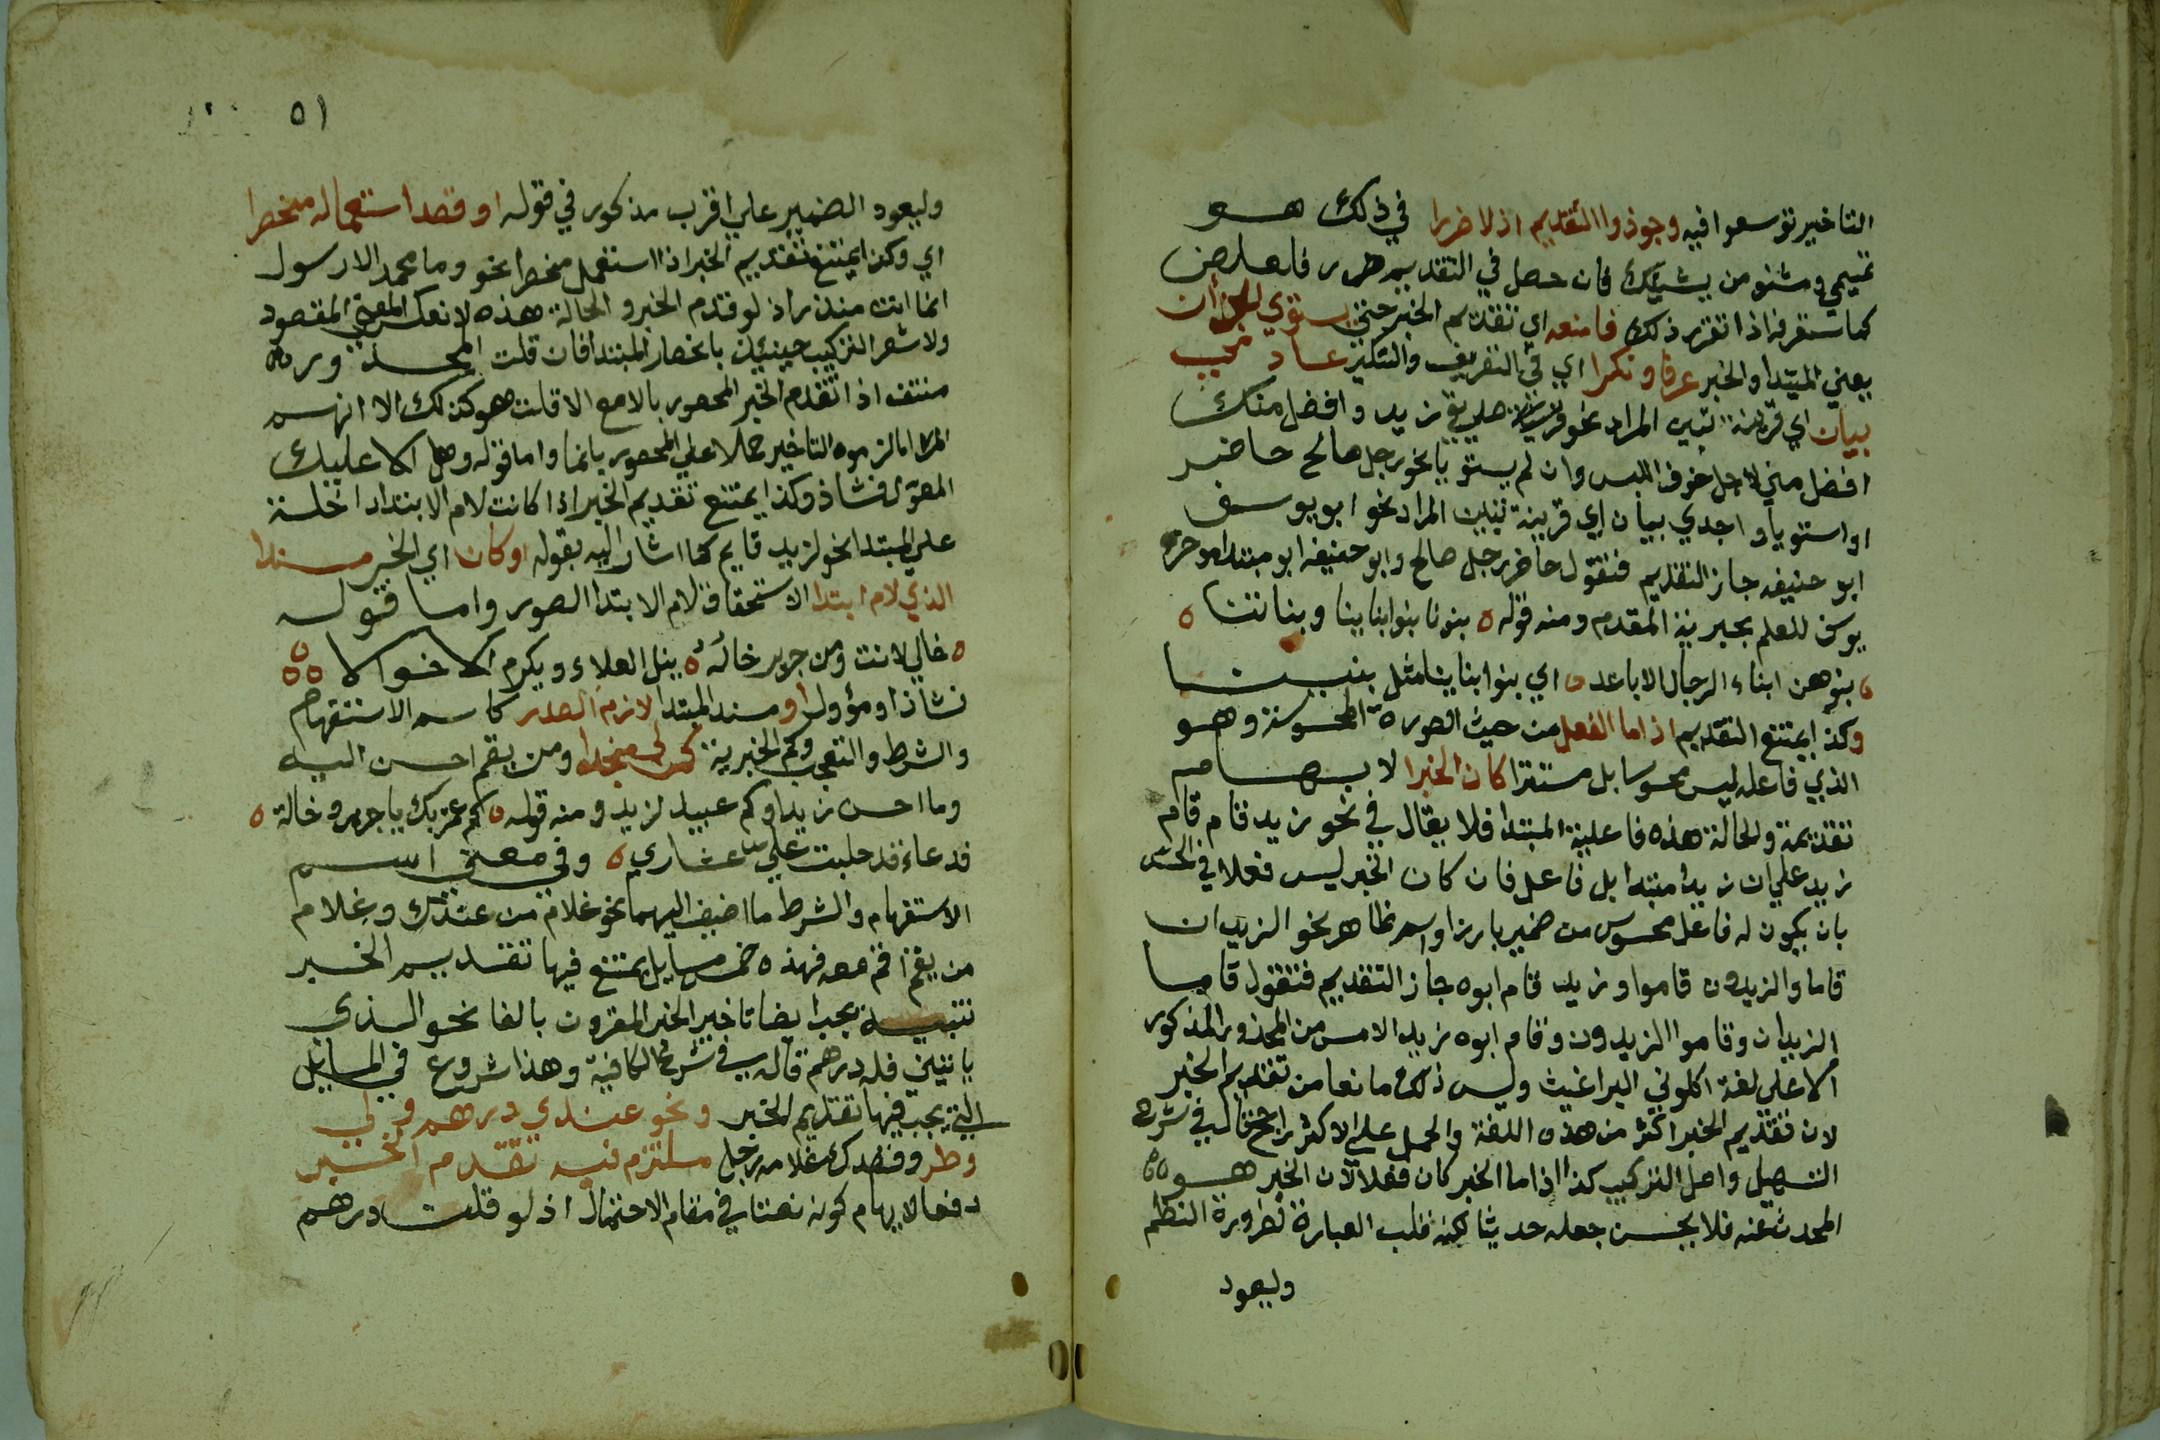 التاخير توسعوا فيه وجوزوا التقديم اذ لا ضررا في ذلك هو
تميمي ومشنو من يشنيك فان حصل في التقديم ضرر فلعارض
كما ستعرفه اذا تقرر ذلك فامنعه اي تقديم الخبر حين يستوي الجزآن
يعني المبتدا والخبر عرفا ونكرا اي في التعريف والتنكير عادمي
بيان اي قرينة تبين المراد نحو صديقي زيد وافضل منك
افضل مني لاجل خوف اللبس وان لم يستويا نحو رجل صالح حاضر
او استويا واجدي بيان اي قرينة تبين المراد نحو ابو يوسف
ابو حنيفه جاز التقديم فتقول حاضر رجل صالح وابو حنيفه ابو مبتدا موخر
يوسف للعلم بخبرية المقدم ومنه قوله ه بنونا بنوا ابناينا وبناتنا ه
ه بنوهن ابناء الرجال الاباعد ه اي بنوا ابناينا مثل بنينا
وكذا يمتنع التقديم اذا ما الفعل من حيث الصورة المحسوسة وهو
الذي فاعله ليس محسوسا بل مستترا كان الخبرا لايهام
تقديمه والحالة هذه فاعلية المبتدا فلا يقال في نحو زيد قام قام
زيد علي ان زيدا مبتدا بل فاعل فان كان الخبر ليس فعلا في الحس
بان يكون له فاعل محسوس من ضمير بارز او اسم ظاهر نحو الزيدان
قاما والزيدون قاموا وزيد قام ابوه جاز التقديم فتقول قاما
الزيدان وقاموا الزيدون وقام ابوه زيد الامن من المحذور المذكور
الا على لغة اكلوني البراغيث وليس ذلك مانعا من تقديم الخبر
لان تقديم الخبر اكثر من هذه اللغة والحمل علي الاكثر راجح قاله في شرح
التسهيل واصل التركيب كذا اذا ما الخبر كان فعلا لان الخبر هو
المحدث عنه فلا يحسن جعله حديثا لكنه قلب العبارة لضرورة النظم
وليعود
٥١
وليعود الضمير علي اقرب مذكور في قوله او قصد استعماله منحصرا
اي وكذا يمتنع تقديم الخبر اذا استعمل منحصرا نحو وما محمد الا رسول
انما انت منذر اذ لو قدم الخبر والحالة هذه لانعكس المعني المقصود
ولاشعر التركيب حينئذ بانحصار المبتدا فان قلت المحذور
منتف اذا تقدم الخبر المحصور بالا مع الا قلت هو كذلك الا انهم
الزموه التاخير حملا علي المحصور بانما واما قوله وهل الا عليك
المعول فشاذ وكذا يمتنع تقديم الخبر اذا كانت لام الابتدا داخلة
علي المبتدا نحو لزيد قايم كما اشار اليه بقوله او كان اي الخبر مسندا
لذي لام ابتدا لاستحقاق لام الابتدا الصدر واما قوله
ه خالي لانت ومن جرير خاله ه ينل العلاء ويكرم الاخوالا ه
فشاذ او مؤول او مسند المبتدا لازم الصدر كاسم الاستفهام
والشرط والتعجب وكم الخبرية كمن لي منجدا ومن يقم احسن اليه
وما احسن زيدا وكم عبيد لزيد ومنه قوله ه كم عمة لك يا جرير وخالة ه
فدعاء قد حلبت علي عشاري ه وفي معني اسم
الاستفهام والشرط ما اضيف اليهما نحو غلام من عندك وغلام
من يقم اقم معه فهذه خمس مسايل يمتنع فيها تقديم الخبر
تنبيه يجب ايضا تاخير الخبر المقرون بالفا نحو الذي
ياتيني فله درهم قاله في شرح الكافية وهذا شروع في المسايل
التي يجب فيها تقديم الخبر ونحو عندي درهم ولي
وطر وقصدك غلامه رجل ملتزم فيه تقدم الخبر
دفعا لايهام كونه نعتا في مقام الاحتمال اذ لو قلت درهم